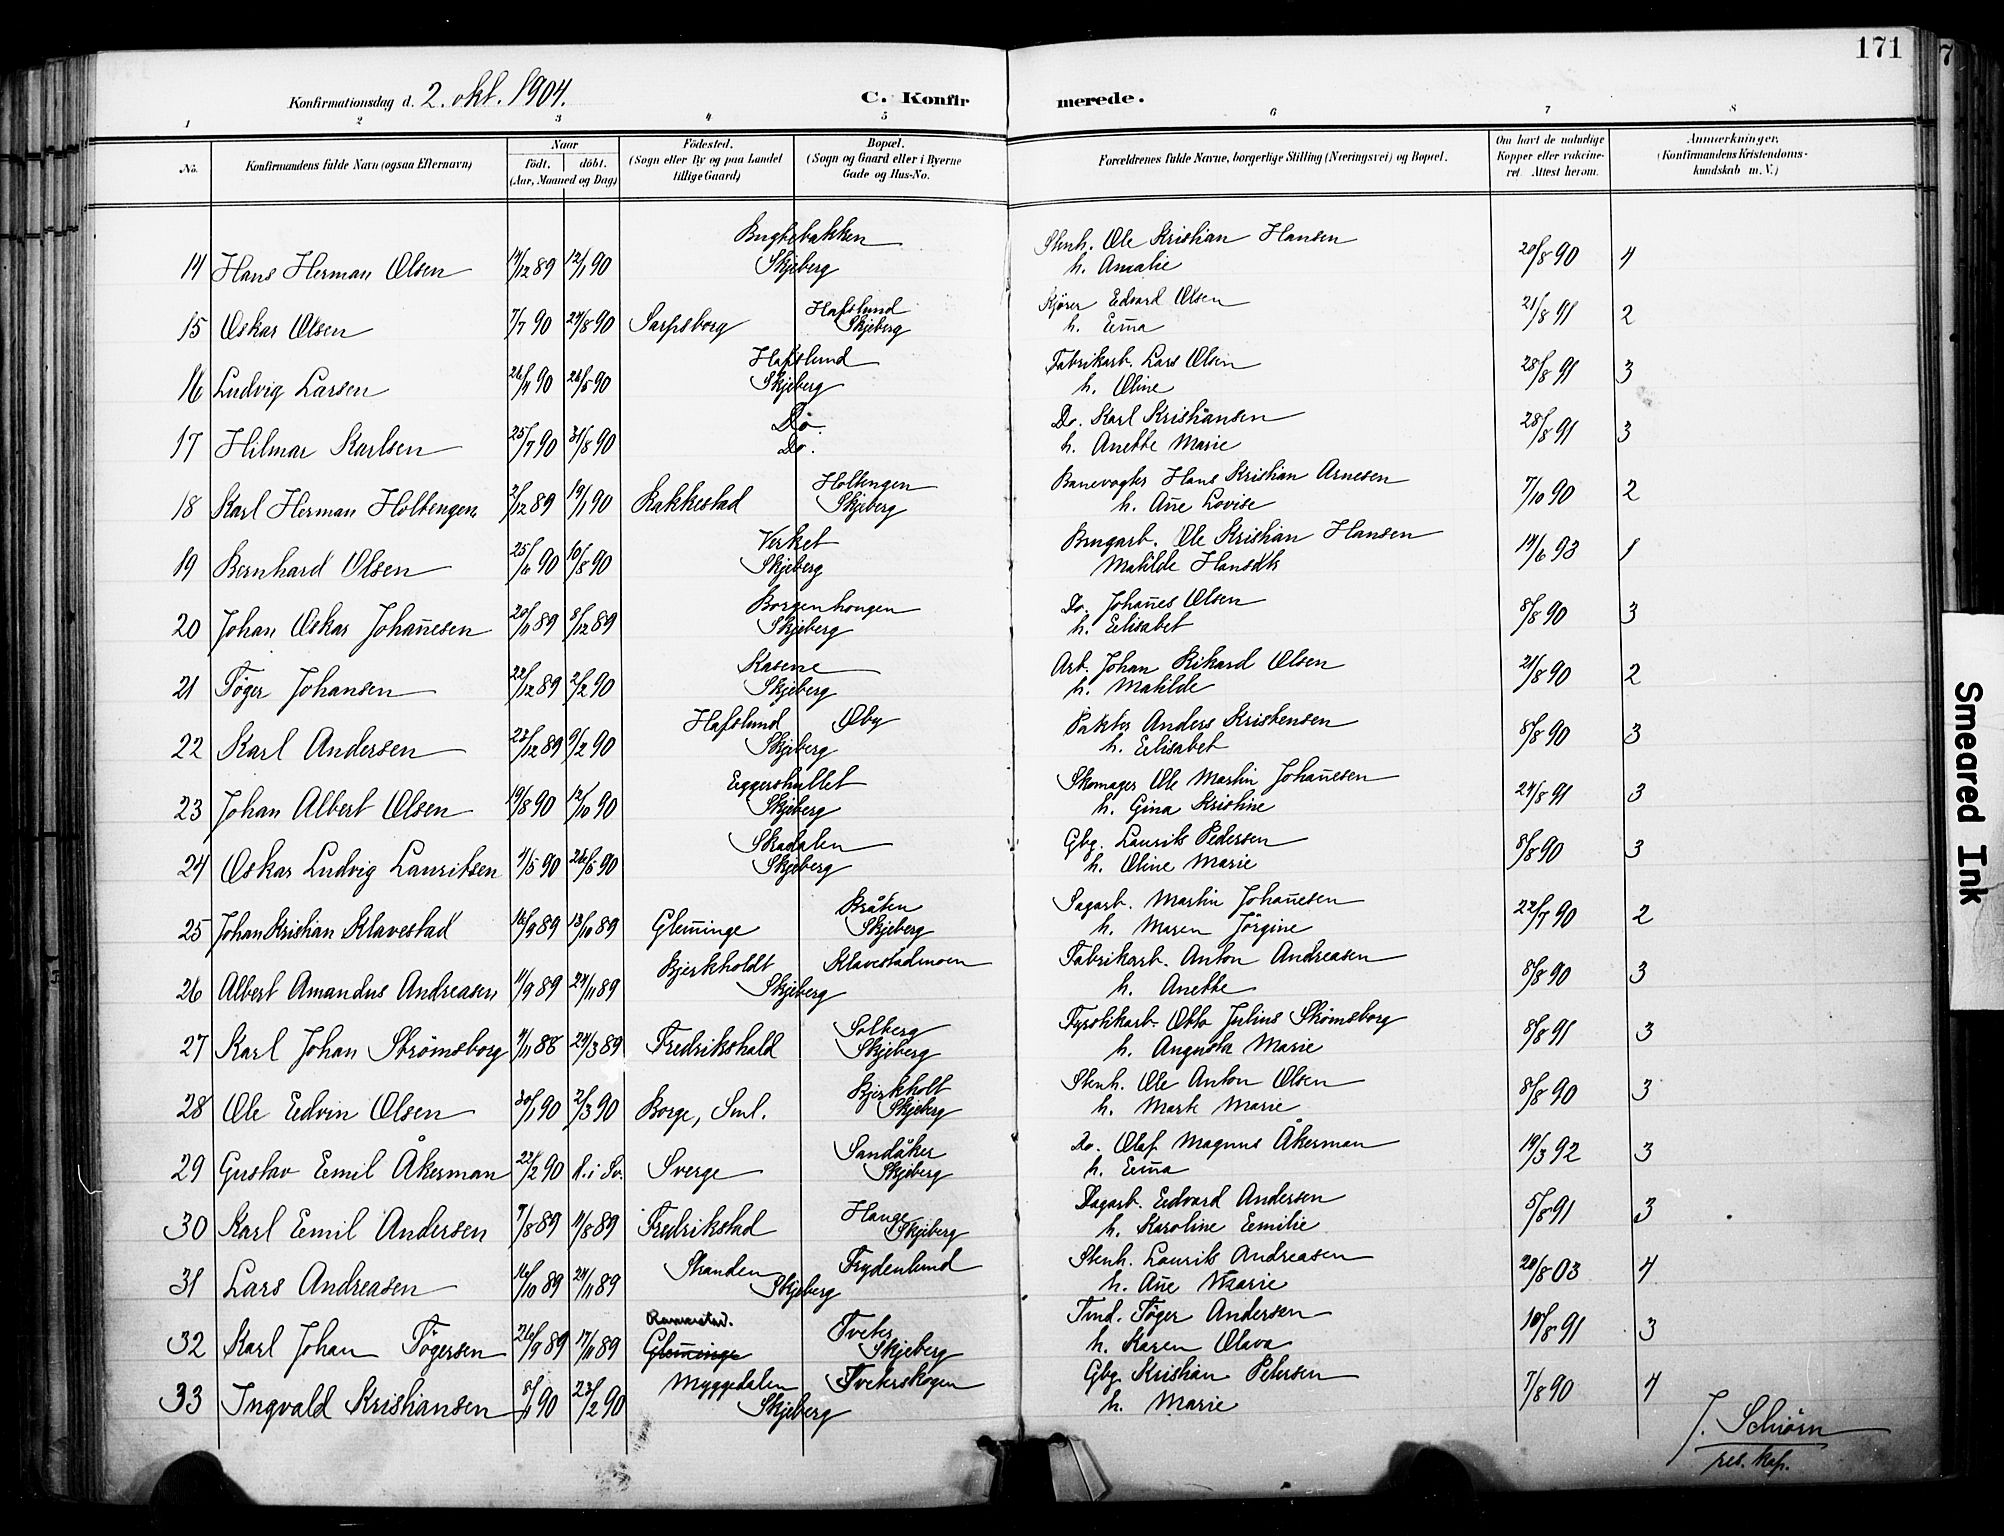 171
Konfirmationsdag d. 2. okt. 1904. C. Konfirmerede.
1 2 3 4 5 6 7 8
No. Konfirmandens fulde Navn (ogsaa Efternavn) Naar Fødested. Bopæl. Forældrenes fulde Navne, borgerlige Stilling (Næringsvei) og Bopæl. Om havt de naturlige Anmærkninger.
født. døbt. (Sogn eller By og paa Landet (Sogn og Gaard eller i Byerne Kopper eller vakcine- (Konfirmandens Kristendoms-
(Aar, Maaned og Dag) tillige Gaard) Gade og Hus-No. ret. Attest herom. kundskab m. V.)
Bugtebakken Stenh. Ole Kristian Hansen
14 Hans Herman Olsen 14/12 89 12/1 90 Skjeberg h. Amalie 20/8 90 4
Hafslund Kjører Edvard Olsen
15 Oskar Olsen 7/7 90 24/8 90 Sarpsborg Skjeberg h. Em̄a 21/8 91 2
Hafslund Fabrikarb. Lars Olsen
16 Ludvig Larsen 26/4 90 26/5 90 Skjeberg h. Oline 28/8 91 3
Do. Do. Karl Kristiansen
17 Hilmar Karlsen 25/7 90 31/8 90 Do. h. Anette Marie 28/8 91 3
Holtengen Banevogter Hans Kristian Arnesen
18 Karl Herman Holtengen 2/12 89 19/1 90 Rakkestad Skjeberg h. An̄e Lovise 7/10 90 2
Verket Brugarb. Ole Kristian Hansen
19 Bernhard Olsen 25/6 90 10/8 90 Skjeberg Matilde Hansdtr 14/6 93 1
Borgenhougen Do. Johan̄es Olsen
20 Johan Oskar Johan̄esen 20/11 89 8/12 89 Skjeberg h. Elisabet 8/8 90 3
Kasene Arb. Johan Rikard Olsen
21 Tøger Johansen 22/12 89 2/2 90 Skjeberg h. Matilde 21/8 90 2
Hafslund Oby Pakter Anders Kristensen
22 Karl Andersen 23/12 89 9/2 90 Skjeberg h. Elisabet 8/8 90 3
Eggershullet Skomager Ole Martin Johan̄esen
23 Johan Albert Olsen 19/8 90 12/10 90 Skjeberg h. Gina Kristine 24/8 91 3
Skadalen Gbg. Laurits Pedersen
24 Oskar Ludvig Lauritsen 4/5 90 26/5 90 Skjeberg h. Oline Marie 8/8 90 3
Bråten Sagarb. Martin Johan̄esen
25 Johan Kristian Klavestad 16/9 89 13/10 89 Glem̄inge Skjeberg h. Maren Jørgine 22/7 90 2
Bjerkholdt Klavestadmoen Fabrikarb. Anton Andreasen
26 Albert Amandus Andreasen 11/9 89 24/11 89 Skjeberg h. Anette 8/8 90 3
Solberg Fyrstikkarb. Otto Julius Strømsborg
27 Karl Johan Strømsborg 4/11 88 24/3 89 Fredrikshald Skjeberg h. Augusta Marie 8/8 91 3
Bjerkholt Stenh. Ole Anton Olsen
28 Ole Edvin Olsen 30/1 90 2/3 90 Borge, Sml. Skjeberg h. Marte Marie 8/8 90 3
Sandåker Do. Olaf Magnus Åkerman
29 Gustav Emil Åkerman 22/2 90 k. i Sv. Sverge Skjeberg h. Em̄a 19/3 92 3
Hauge Dagarb. Edvard Andersen
30 Karl Emil Andersen 7/8 89 11/8 89 Fredrikstad Skjeberg h. Karoline Emilie 5/8 91 3
Stranden Frydenlund Stenh. Laurits Andreasen
31 Lars Andreasen 16/10 89 24/11 89 Skjeberg h. An̄e Marie 20/8 03 4
Tveter Tmd. Tøger Andersen
32 Karl Johan Tøgersen 26/9 89 17/11 89 Glem̄inge Skjeberg h. Karen Olava 10/8 91 3
Myggedalen Tveterskogen Gbg. Kristian Petersen
33 Ingvald Kristiansen 8/1 90 23/2 90 Skjeberg h. Marie 7/8 90 4
J. Schiørn
res. kap.
Smeared Ink